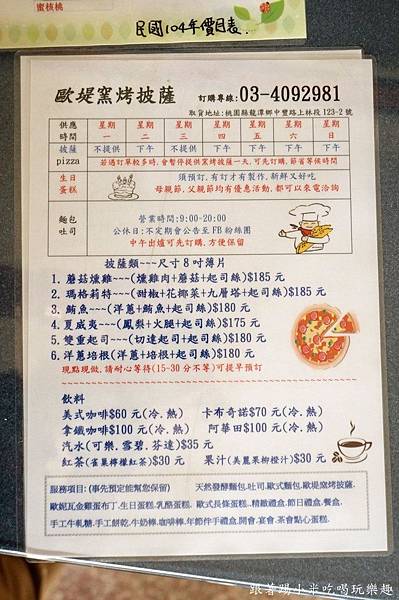 蜜核桃
民國104年價目表
歐堤窯烤披薩 訂購專線:03-4092981
取貨地址:桃園縣龍潭鄉中豐路上林段123-2號
供應時間 星期一 星期二 星期三 星期四 星期五 星期六 星期日
披薩pizza 不提供 下午 不提供 下午 下午 下午 下午
若過訂單較多時,會暫停提供窯烤披薩一天,可先訂購,節省等候時間
生日蛋糕 須預訂,有訂才有製作,新鮮又好吃
母親節,父親節均有優惠活動,都可以來電洽詢
麵包吐司 營業時間:9:00-20:00
公休日:不定期會公告至FB粉絲團
中午出爐可先訂購,方便保留
披薩類~~~尺寸8吋薄片
1. 蘑菇燻雞~~~(燻雞肉+蘑菇+起司絲)$185元
2. 瑪格莉特~~~(甜椒+花椰菜+九層塔+起司絲)$185元
3. 鮪魚~~~(洋蔥+鮪魚+起司絲)$180元
4. 夏威夷~~~(鳳梨+火腿+起司絲)$175元
5. 雙重起司~~~(切達起司+起司絲)$180元
6. 洋蔥培根(洋蔥+培根+起司絲)$180元
現點現做,請耐心等待(15-30分不等)可提早預訂
飲料
美式咖啡$60元(冷.熱) 卡布奇諾$70元(冷.熱)
拿鐵咖啡$100元(冷.熱) 阿華田$100元(冷.熱)
汽水(可樂.雪碧.芬達)$35元
紅茶(雀巢檸檬紅茶)$30元 果汁(美麗果柳橙汁)$30元
服務項目:(事先預定能幫您保留) 天然發酵麵包.吐司.歐式麵包.歐堤窯烤披薩.
歐妮瓦金雞蛋布丁.生日蛋糕.乳酪蛋糕. 歐式長條蛋糕..精緻禮盒.節日禮盒.餐盒.
手工牛軋糖.手工餅乾.牛奶棒.咖啡棒.年節伴手禮盒.開會.宴會.茶會點心蛋糕.
跟著踢小米吃喝玩樂趣